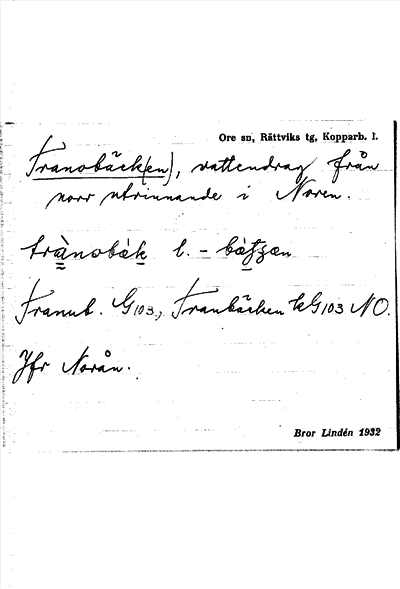 Ore sn, Rättviks tg, Kopparb. l.
Tranobäck(en), vattendrag från
norr utrinnande i Noren.
trànobäk l. - bä
Tranub. G103, Tranbäcken kG103 NO.
Jfr Norån.
Bror Lindén 1932